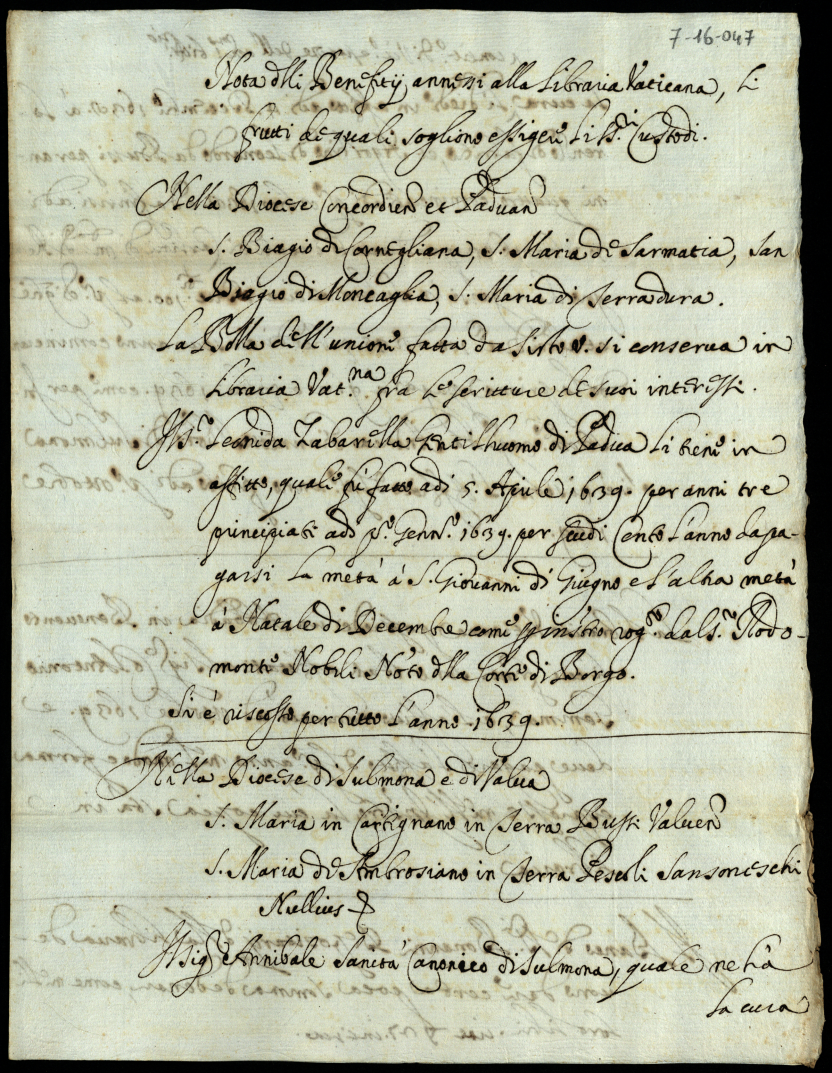 7-16-047
Nota dlli Benefitij annessi alla Libraria Vaticana, li
frutti de quali sogliono essigere li ss.ri Custodi.
Nella Diocese Concordien et Paduan
S. Biagio di Cornegliana, S. Maria de Sarmatia, San
Biagio di Moncaglia, S. Maria di Terradura.
La Bolla dell'unione fatta da Sisto V. si conserva in
Libraria Vat.na fra le scritture de suoi interessi.
Il s.r Leonida Zabarella Gentilhuomo di Padua li tiene in
affitto, quale fù fatto adi 5. Aprile 1639. per anni tre
principiati adi p.o Genn.o 1639. per scudi cento l'anno da pa-
garsi la metà à S. Giovanni di Giugno e l'altra metà
à Natale di Decembre come p instro rog.to dal s.r Rodo-
monte Nobili Noto dlla Corte di Borgo.
Si è riscosso per tutto l'anno 1639.
Nella Diocese di Sulmona e di Valva
S. Maria in Cartignano in Terra Bussi Valven
S. Maria de Ambrosiano in Terra Pescoli Sansoneschi
Nullius
Il sig.r Annibale Sanità Canonico di Sulmona, quale ne hà
la cura